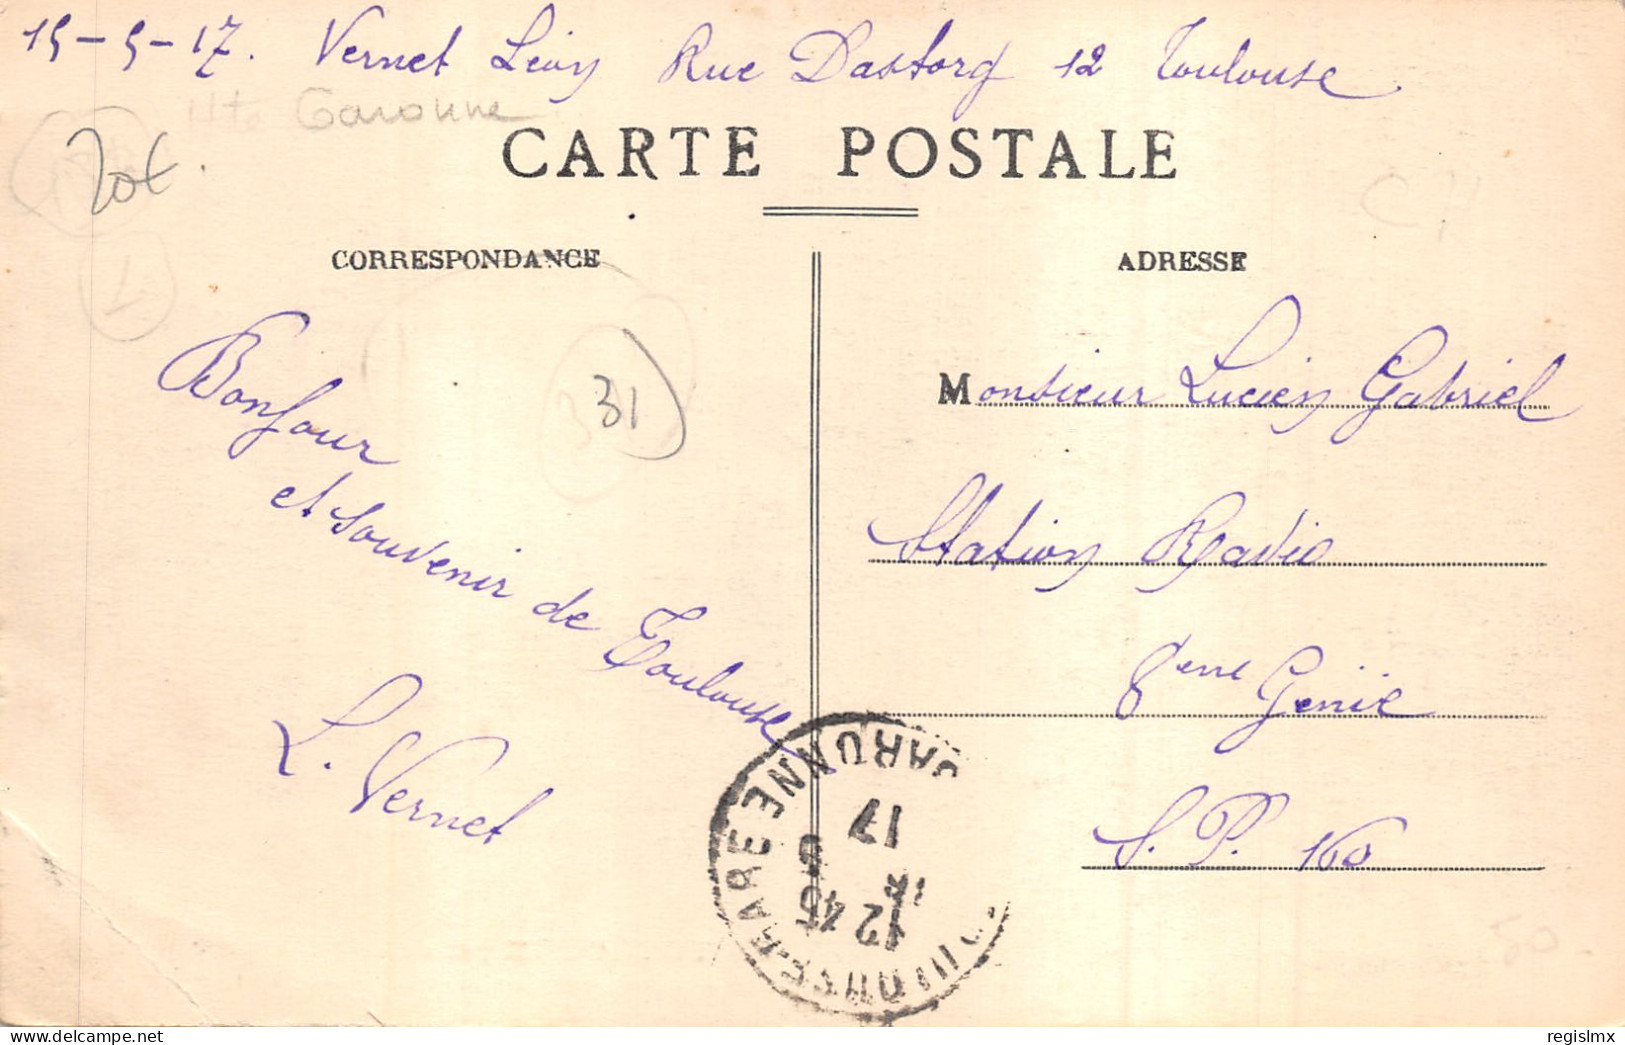 15-5-17. Vernet Léon Rue Dastorg 12 Toulouse
Hte Garonne
20€.
CARTE POSTALE
CORRESPONDANCE
ADRESSE
31
Bonjour
et souvenir de Toulouse
L. Vernet
Monsieur Lucien Gabriel
Station Radio
8eme Génie
S. P. 160
GARONNE
17
12 45
50
1
regislmx